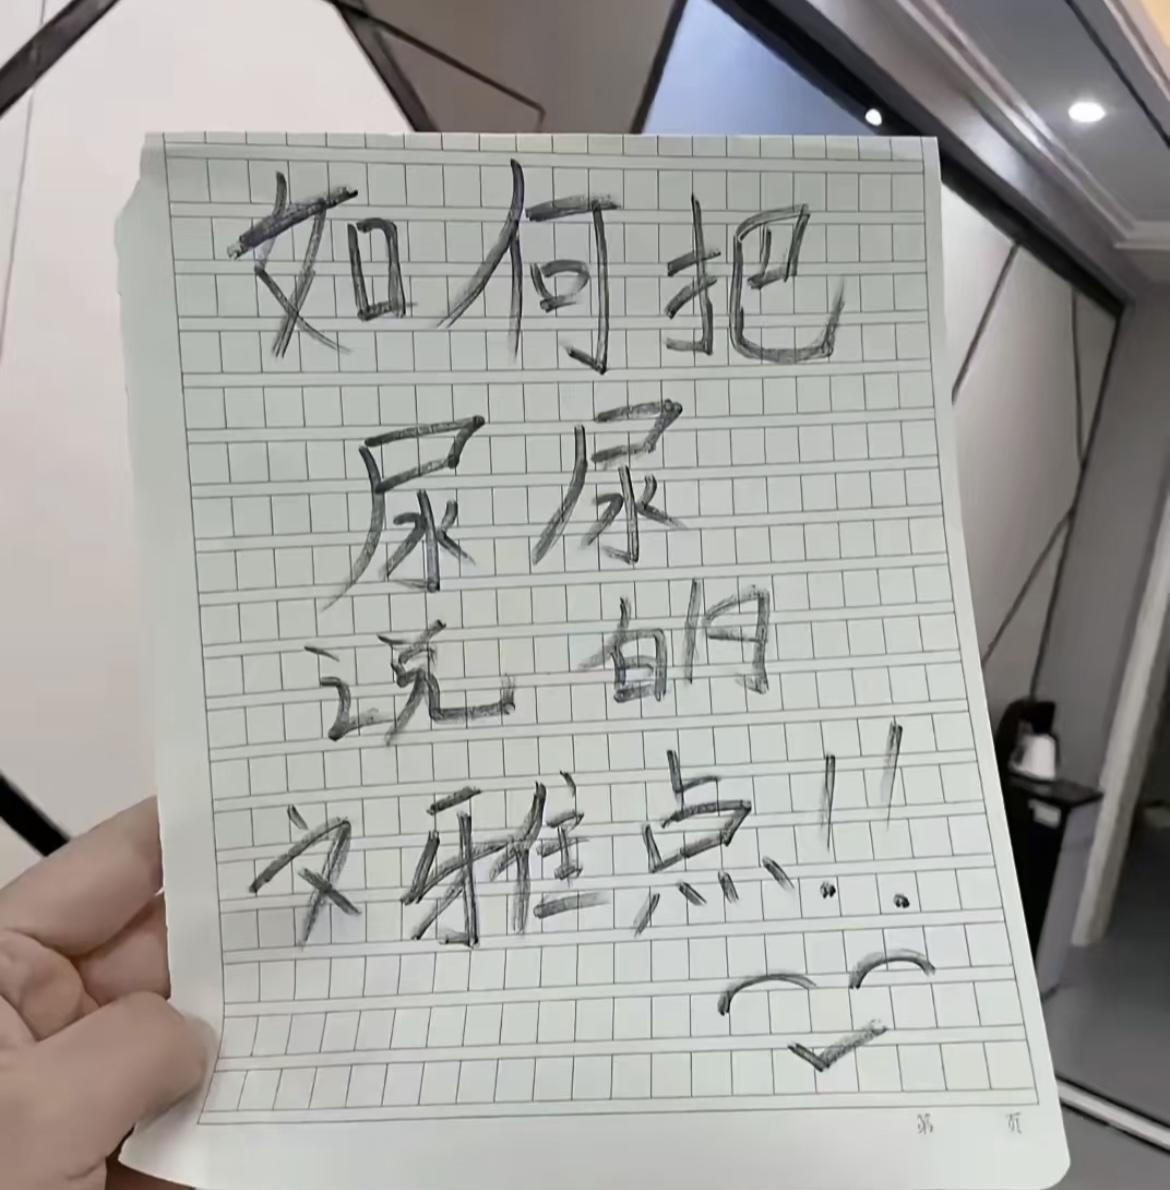 如何把
尿尿
说的
文雅点!!
第 页